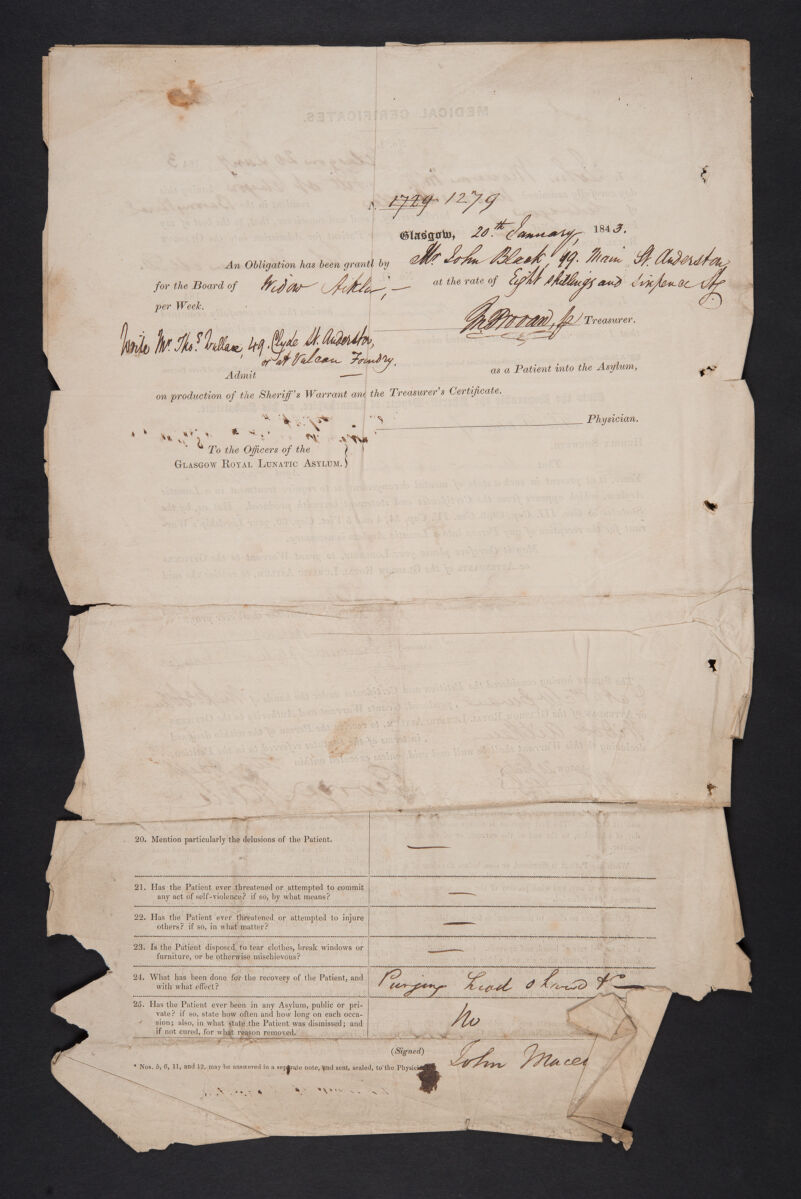 1729 1279
Glasgow, 20th January, 1843.
An Obligation has been granted by Mr. John Black 49. Main St. Anderston,
for the Board of Widow at the rate of Eight shillings and Sixpence Stg
per Week.
Treasurer.
Write Mr. Thos. Wallace, 49. Clyde St. Anderston,
or at Vulcan Foundry.
Admit — as a Patient into the Asylum,
on production of the Sheriff's Warrant and the Treasurer's Certificate.
Physician.
To the Officers of the
Glasgow Royal Lunatic Asylum.
20. Mention particularly the delusions of the Patient. —
21. Has the Patient ever threatened or attempted to commit
any act of self-violence? if so, by what means? —
22. Has the Patient ever threatened or attempted to injure
others? if so, in what matter? —
23. Is the Patient disposed to tear clothes, break windows or
furniture, or be otherwise mischievous? —
24. What has been done for the recovery of the Patient, and
with what effect? Purging head shaved &c —
25. Has the Patient ever been in any Asylum, public or pri-
vate? if so, state how often and how long on each occa-
sion; also, in what state the Patient was dismissed; and
if not cured, for what reason removed. No
(Signed) John
* Nos. 5, 6, 11, and 12, may be answered in a separate note, and sent, sealed, to the